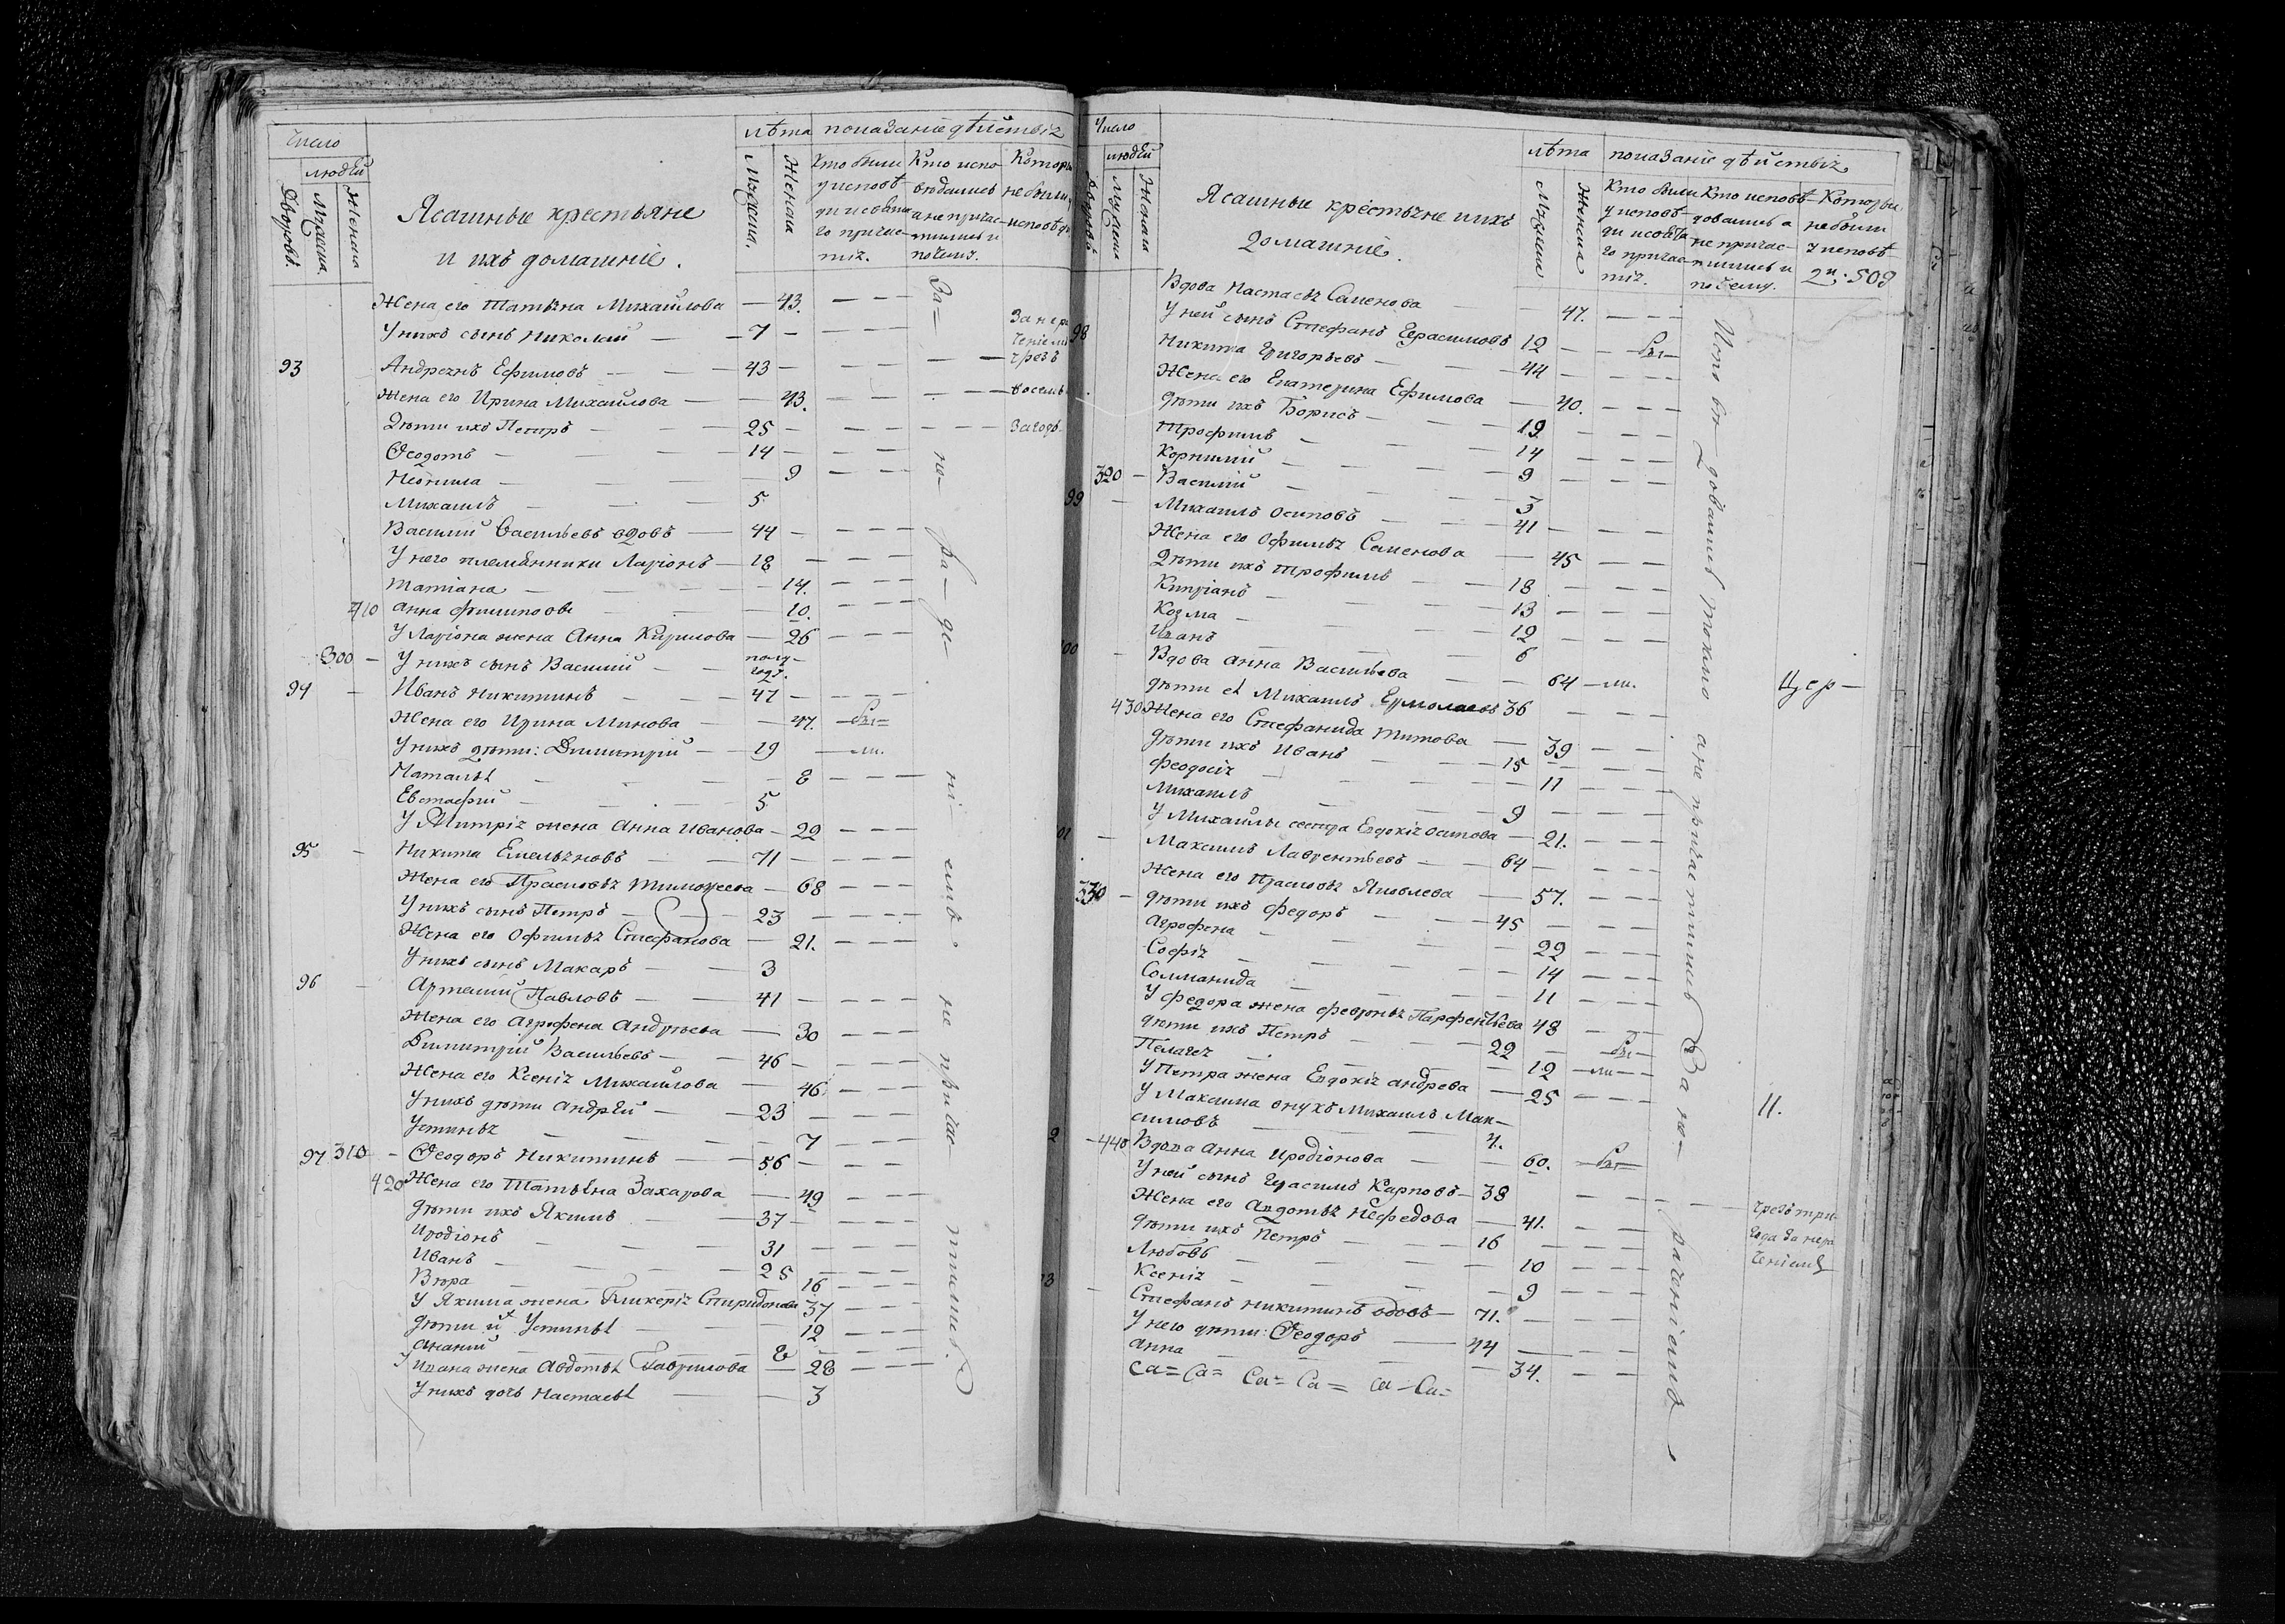 Число
людей
Дворовъ.
Мужеска.
Женска
Ясашные крестьяне
и ихъ домашніе.
лѣта
Мужска.
Женска
показаніе дѣйствія
Кто были
у исповѣ-
ди и свята
го причас-
тія.
Кто испо
вѣдались
а не причас-
тились и
почему.
Которы
не были
исповѣди
Жена его Татьяна Михайлова — 43.
У нихъ сынъ Николай — 7
93 Андреянъ Ефимовъ — 43
Жена его Ирина Михайлова — 43.
Дѣти ихъ Петръ — 25
Ѳеодотъ — 14
Неонила — 9
Михаилъ — 5
Василий Васильевъ вдовъ — 44
У него племянники Ларіонъ — 18
Татіана — 14.
410 Анна Филипповы — 10.
У Ларіона жена Анна Кирилова — 26
300 — У нихъ сынъ Василий — полу-
года.
94 — Иванъ Никитинъ — 47
Жена его Ирина Минова — 47. бы=
У нихъ дѣти: Димитрій — 19 — ли.
Наталья — 8
Евстафий — 5
У Митрія жена Анна Иванова — 22
95 — Никита Емельяновъ — 71
Жена его Прасковья Тимофеева — 68
У нихъ сынъ Петръ — 23
Жена его Офимья Стефанова — 21.
У нихъ сынъ Макаръ — 3
96 — Артемий Павловъ — 41
Жена его Агрофена Андреева — 30
Димитрий Васильевъ — 46
Жена его Ксенія Михайлова — 46
У нихъ дѣти Андрей — 23
Устинья — 7
97 310 — Ѳеодоръ Никитинъ — 56
420 Жена его Татьяна Захарова — 49
Дѣти ихъ Якимъ — 37
Иродіонъ — 31
Иванъ — 25
Вѣра — 16
У Якима жена Гликерія Спиридонова 37
Дѣти их Устинья — 12
Ананий — 8
У Ивана жена Авдотья Гаврилова — 28
У нихъ дочь Настасья — 3
За= не- ра- де- ні емъ не причас- тились.
За нера
ченіемъ
чрезъ
восемь
Число
людей
Дворовъ
Мужска
Женска
Ясашные крестьяне и ихъ
домашніе.
лѣта
Мужска
Женска
показаніе дѣйствія
Кто были
у исповѣ-
ди и свята
го причас-
тія.
Кто исповѣ-
довались а
не причас-
тились и
почему.
Которы
не были
у исповѣ
Вдова Настасья Семенова — 47.
98 У ней сынъ Стефанъ Герасимовъ 12 бы—
Никита Григорьевъ — 44
Жена его Екатерина Ефимова — 40.
Дѣти ихъ Борисъ — 19
Трофимъ — 14
Корнилий — 9
320 — Василий — 3
99 — Михаилъ Осиповъ — 41
Жена его Офимья Семенова — 45
Дѣти ихъ Трофимъ — 18
Кипріанъ — 13
Козма — 12
Иванъ — 6
00 — Вдова Анна Васильева — 64 — ли.
Дѣти ея Михаилъ Ермолаевъ 36
430 Жена его Стефанида Титова — 39
Дѣти ихъ Иванъ — 15
Феодосія — 11
Михаилъ — 9
У Михайлы сестра Евдокія Осипова — 21.
01 — Максимъ Лаврентьевъ — 64
Жена его Прасковья Яковлева — 57.
330 — Дѣти ихъ Федоръ — 45
Агрофена — 22
Софія — 14
Соломанида — 11
У Федора жена Феврония Парфентьева 48
Дѣти ихъ Петръ — 22 — бы—
Пелагея — 12 — ли—
У Петра жена Евдокія Андрева — 25
У Максима внукъ Михаилъ Мак-
симовъ — 4.
2 — 440 Вдова Анна Иродіонова — 60. — бы—
У ней сынъ Герасимъ Карповъ — 38
Жена его Авдотья Нефедова — 41.
Дѣти ихъ Петръ — 16
Любовь — 10
Ксенія — 9
3 — Стефанъ Никитинъ вдовъ — 71.
У него дѣти: Ѳеодоръ — 44
Анна — 34.
Са= Са= Са= Са= Са= Са=
Испо вѣ- довались токмо а не причастились За не- раченіемъ
Цер—
II.
чрезъ три
года за нера
ченіемъ